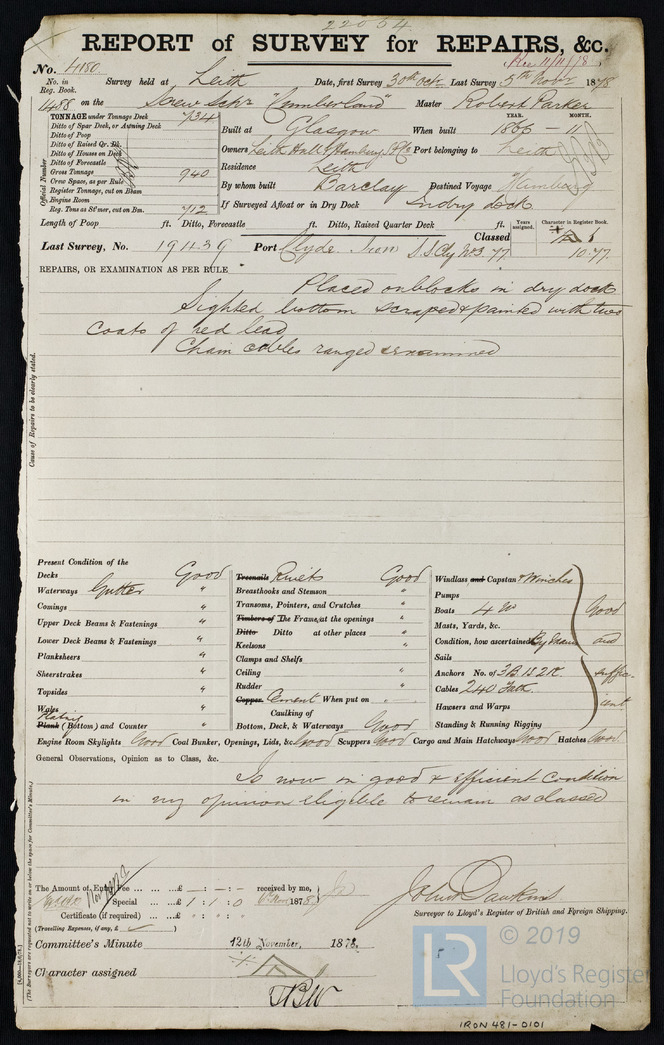 22054
REPORT of SURVEY for REPAIRS, &c.
No. 4180. 11/11/78
No. in Reg. Book. Survey held at Leith Date, first Survey 30th Oct. Last Survey 5th Novr 1878
1488 on the Screw Schr "Cumberland" Master Robert Parker
TONNAGE under Tonnage Deck 734
Ditto of Spar Deck, or Awning Deck
Ditto of Poop
Ditto of Raised Qr. Dk.
Ditto of Houses on Deck
Ditto of Forecastle
Gross Tonnage 940
Crew Space, as per Rule
Register Tonnage, cut on Beam
Engine Room
Reg. Tons as St'mer, cut on Bm. 712
Official Number
YEAR. MONTH.
Built at Glasgow When built 1866 - 11
Owners Leith Hull & Hamburg Port belonging to Leith
Residence Leith
By whom built Barclay Destined Voyage Hamburg
If Surveyed Afloat or in Dry Dock In dry dock
Length of Poop ft. Ditto, Forecastle ft. Ditto, Raised Quarter Deck ft.
Years assigned. Character in Register Book.
Last Survey, No. 19439 Port Clyde. Iron S.S. Cly No 3. 77 Classed A 1
10.77
REPAIRS, OR EXAMINATION AS PER RULE
Placed on blocks in dry dock
Sighted bottom scraped & painted with two
coats of red lead
Chain cables ranged & examined
Cause of Repairs to be clearly stated.
Present Condition of the
Decks Good
Waterways Gutter "
Comings "
Upper Deck Beams & Fastenings "
Lower Deck Beams & Fastenings "
Planksheers "
Sheerstrakes "
Topsides "
Wales "
Plating
Plank (Bottom) and Counter "
Treenails Rivets Good
Breasthooks and Stemson "
Transoms, Pointers, and Crutches "
Timbers of The Frame, at the openings "
Ditto Ditto at other places "
Keelsons "
Clamps and Shelfs
Ceiling "
Rudder "
Copper Cement When put on "
Caulking of
Bottom, Deck, & Waterways Good
Windlass and Capstan & Winches
Pumps
Boats 4 W
Masts, Yards, &c.
Condition, how ascertained By Exam
Sails
Anchors No. of 3B. 1S. 2K.
Cables 240 Fath.
Hawsers and Warps
Standing & Running Rigging
Good
and
suffic-
ient
Engine Room Skylights Good Coal Bunker, Openings, Lids, &c. Good Scuppers Good Cargo and Main Hatchways Good Hatches Good
General Observations, Opinion as to Class, &c.
Is now in good & efficient condition
in my opinion eligible to remain as classed
(The Surveyors are requested not to write on or below the space for Committee's Minute.)
The Amount of Entry Fee ... ... ... £ - : - : - received by me,
Special ... £ 1 : 1 : 0 6 Nov 1878
Certificate (if required) ... £ " : " : "
(Travelling Expenses, if any, £ )
John Dawkins
Surveyor to Lloyd's Register of British and Foreign Shipping.
Committee's Minute 12th November, 1878.
Character assigned A 1
LR
© 2019
Lloyd's Register
Foundation
IRON 481-0101